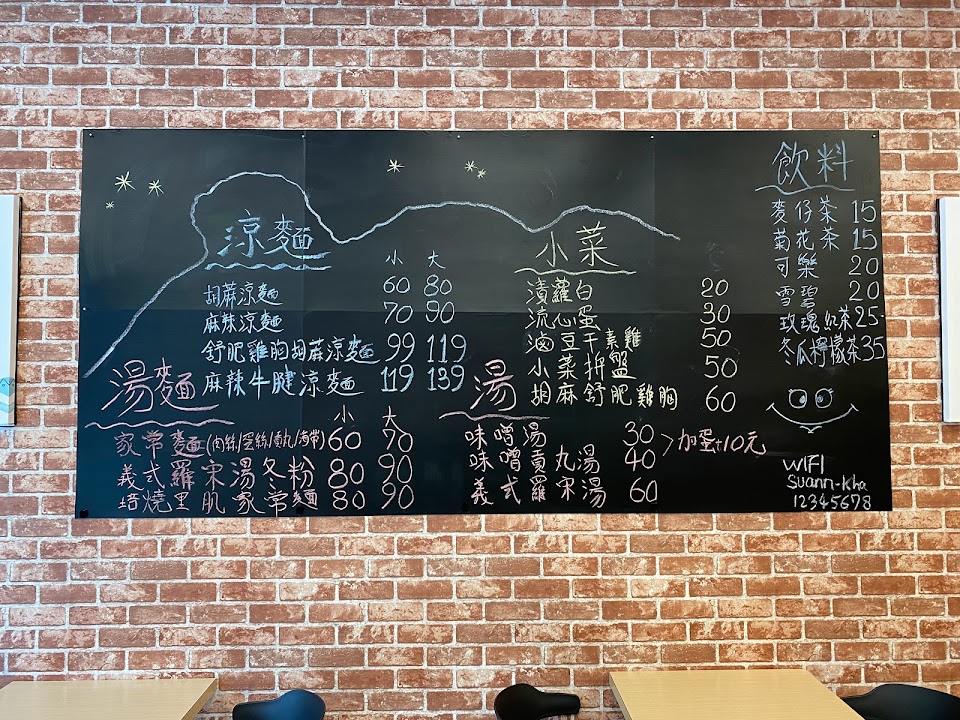 涼麵
小 大
胡蔴涼麵 60 80
麻辣涼麵 70 90
舒肥雞胸胡蔴涼麵 99 119
麻辣牛腱涼麵 119 139
湯麵
小 大
家常麵(肉絲/蛋絲/貢丸/海帶) 60 70
義式羅宋湯冬粉 80 90
培燒里肌家常麵 80 90
小菜
漬蘿白 20
流心蛋 30
滷豆干素雞 50
小菜拼盤 50
胡麻舒肥雞胸 60
湯
味噌湯 30
味噌貢丸湯 40
加蛋+10元
義式羅宋湯 60
飲料
麥仔茶 15
菊花茶 15
可樂 20
雪碧 20
玫瑰紅茶 25
冬瓜檸檬茶 35
WIFI
Suann-kha
12345678